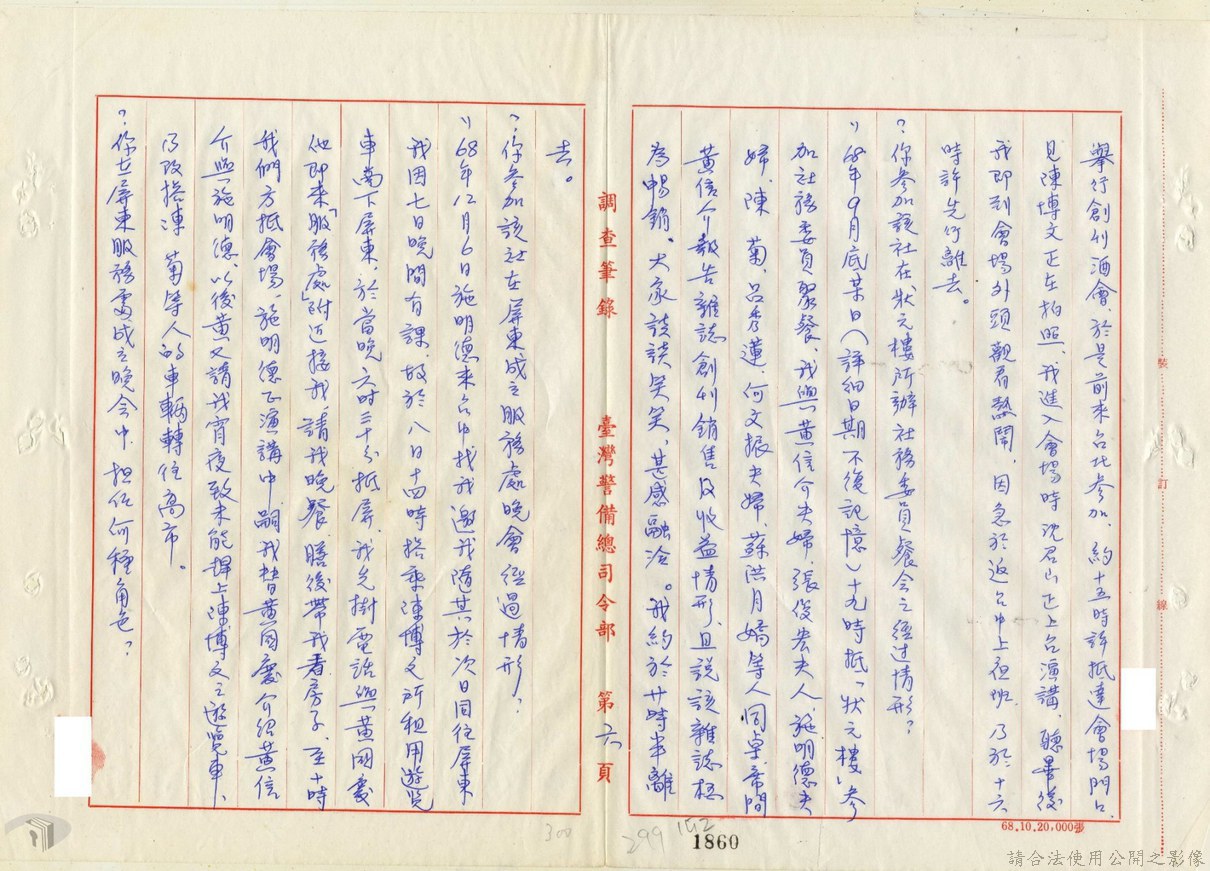 舉行創刊酒會，於是前來台北參加，約十五時許抵達會場門口，
見陳博文正在拍照，我進入會場時沈君山正上台演講，聽畢後
我即到會場外頭觀看熱鬧，因急於返台中上夜班，乃於十六
時許先行離去。
？你參加該社在「狀元樓」所辦社務委員餐會之經過情形？
〃68年9月底某日（詳細日期不復記憶）十九時抵「狀元樓」參
加社務委員聚餐，我與黃信介夫婦、張俊宏夫人、施明德夫
婦、陳　菊、呂秀蓮、何文振夫婦、蘇洪月嬌等人同桌，席間
黃信介報告雜誌創刊銷售及收益情形，且說該雜誌極
為暢銷。大家談談笑笑，甚感融洽。我約於廿時半離
調查筆錄　臺灣警備總司令部　第六頁
去。
？你參加該社在屏東成立服務處晚會經過情形？
〃68年12月6日施明德來台中找我邀我隨其於次日同往屏東
我因七日晚間有課，故於八日十四時搭乘陳博文所租用遊覽
車南下屏東，於當晚六時三十分抵屏，我先掛電話與黃國慶
他即來「服務處」附近接我，請我晚餐，膳後帶我看房子，至十時
我們方抵會場，施明德正演講中，嗣我替黃國慶介紹黃信
介與施明德，以後黃又請我宵夜致未能趕上陳博文之遊覽車，
乃改搭陳　菊等人的車輛轉往高市。
？你在屏東服務處成立晚會中，担任何種角色？
68.10.20,000夢
裝訂線
300
299
192
1860
請合法使用公開之影像